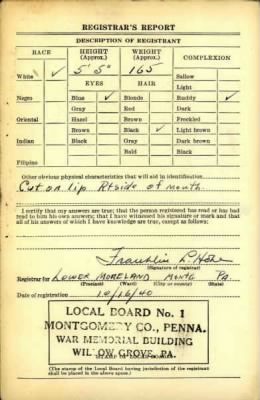 REGISTRAR'S REPORT
DESCRIPTION OF REGISTRANT
RACE
HEIGHT (Approx.)
WEIGHT (Approx.)
COMPLEXION
White ✓
5' 5"
165
Sallow
EYES
HAIR
Light
Negro
Blue ✓
Blonde
Ruddy ✓
Gray
Red
Dark
Oriental
Hazel
Brown
Freckled
Brown
Black ✓
Light brown
Indian
Black
Gray
Dark brown
Bald
Black
Filipino
Other obvious physical characteristics that will aid in identification
Cut on lip Rt side of mouth
I certify that my answers are true; that the person registered has read or has had
read to him his own answers; that I have witnessed his signature or mark and that
all of his answers of which I have knowledge are true, except as follows:
Franklin
(Signature of registrar)
Registrar for Lower Moreland Montg Pa.
(Precinct) (Ward) (State)
Date of registration 10/16/40
LOCAL BOARD No. 1
MONTGOMERY CO., PENNA.
WAR MEMORIAL BUILDING
WILLOW GROVE, PA.
(The stamp of the Local Board having jurisdiction of the registrant
shall be placed in the above space.)